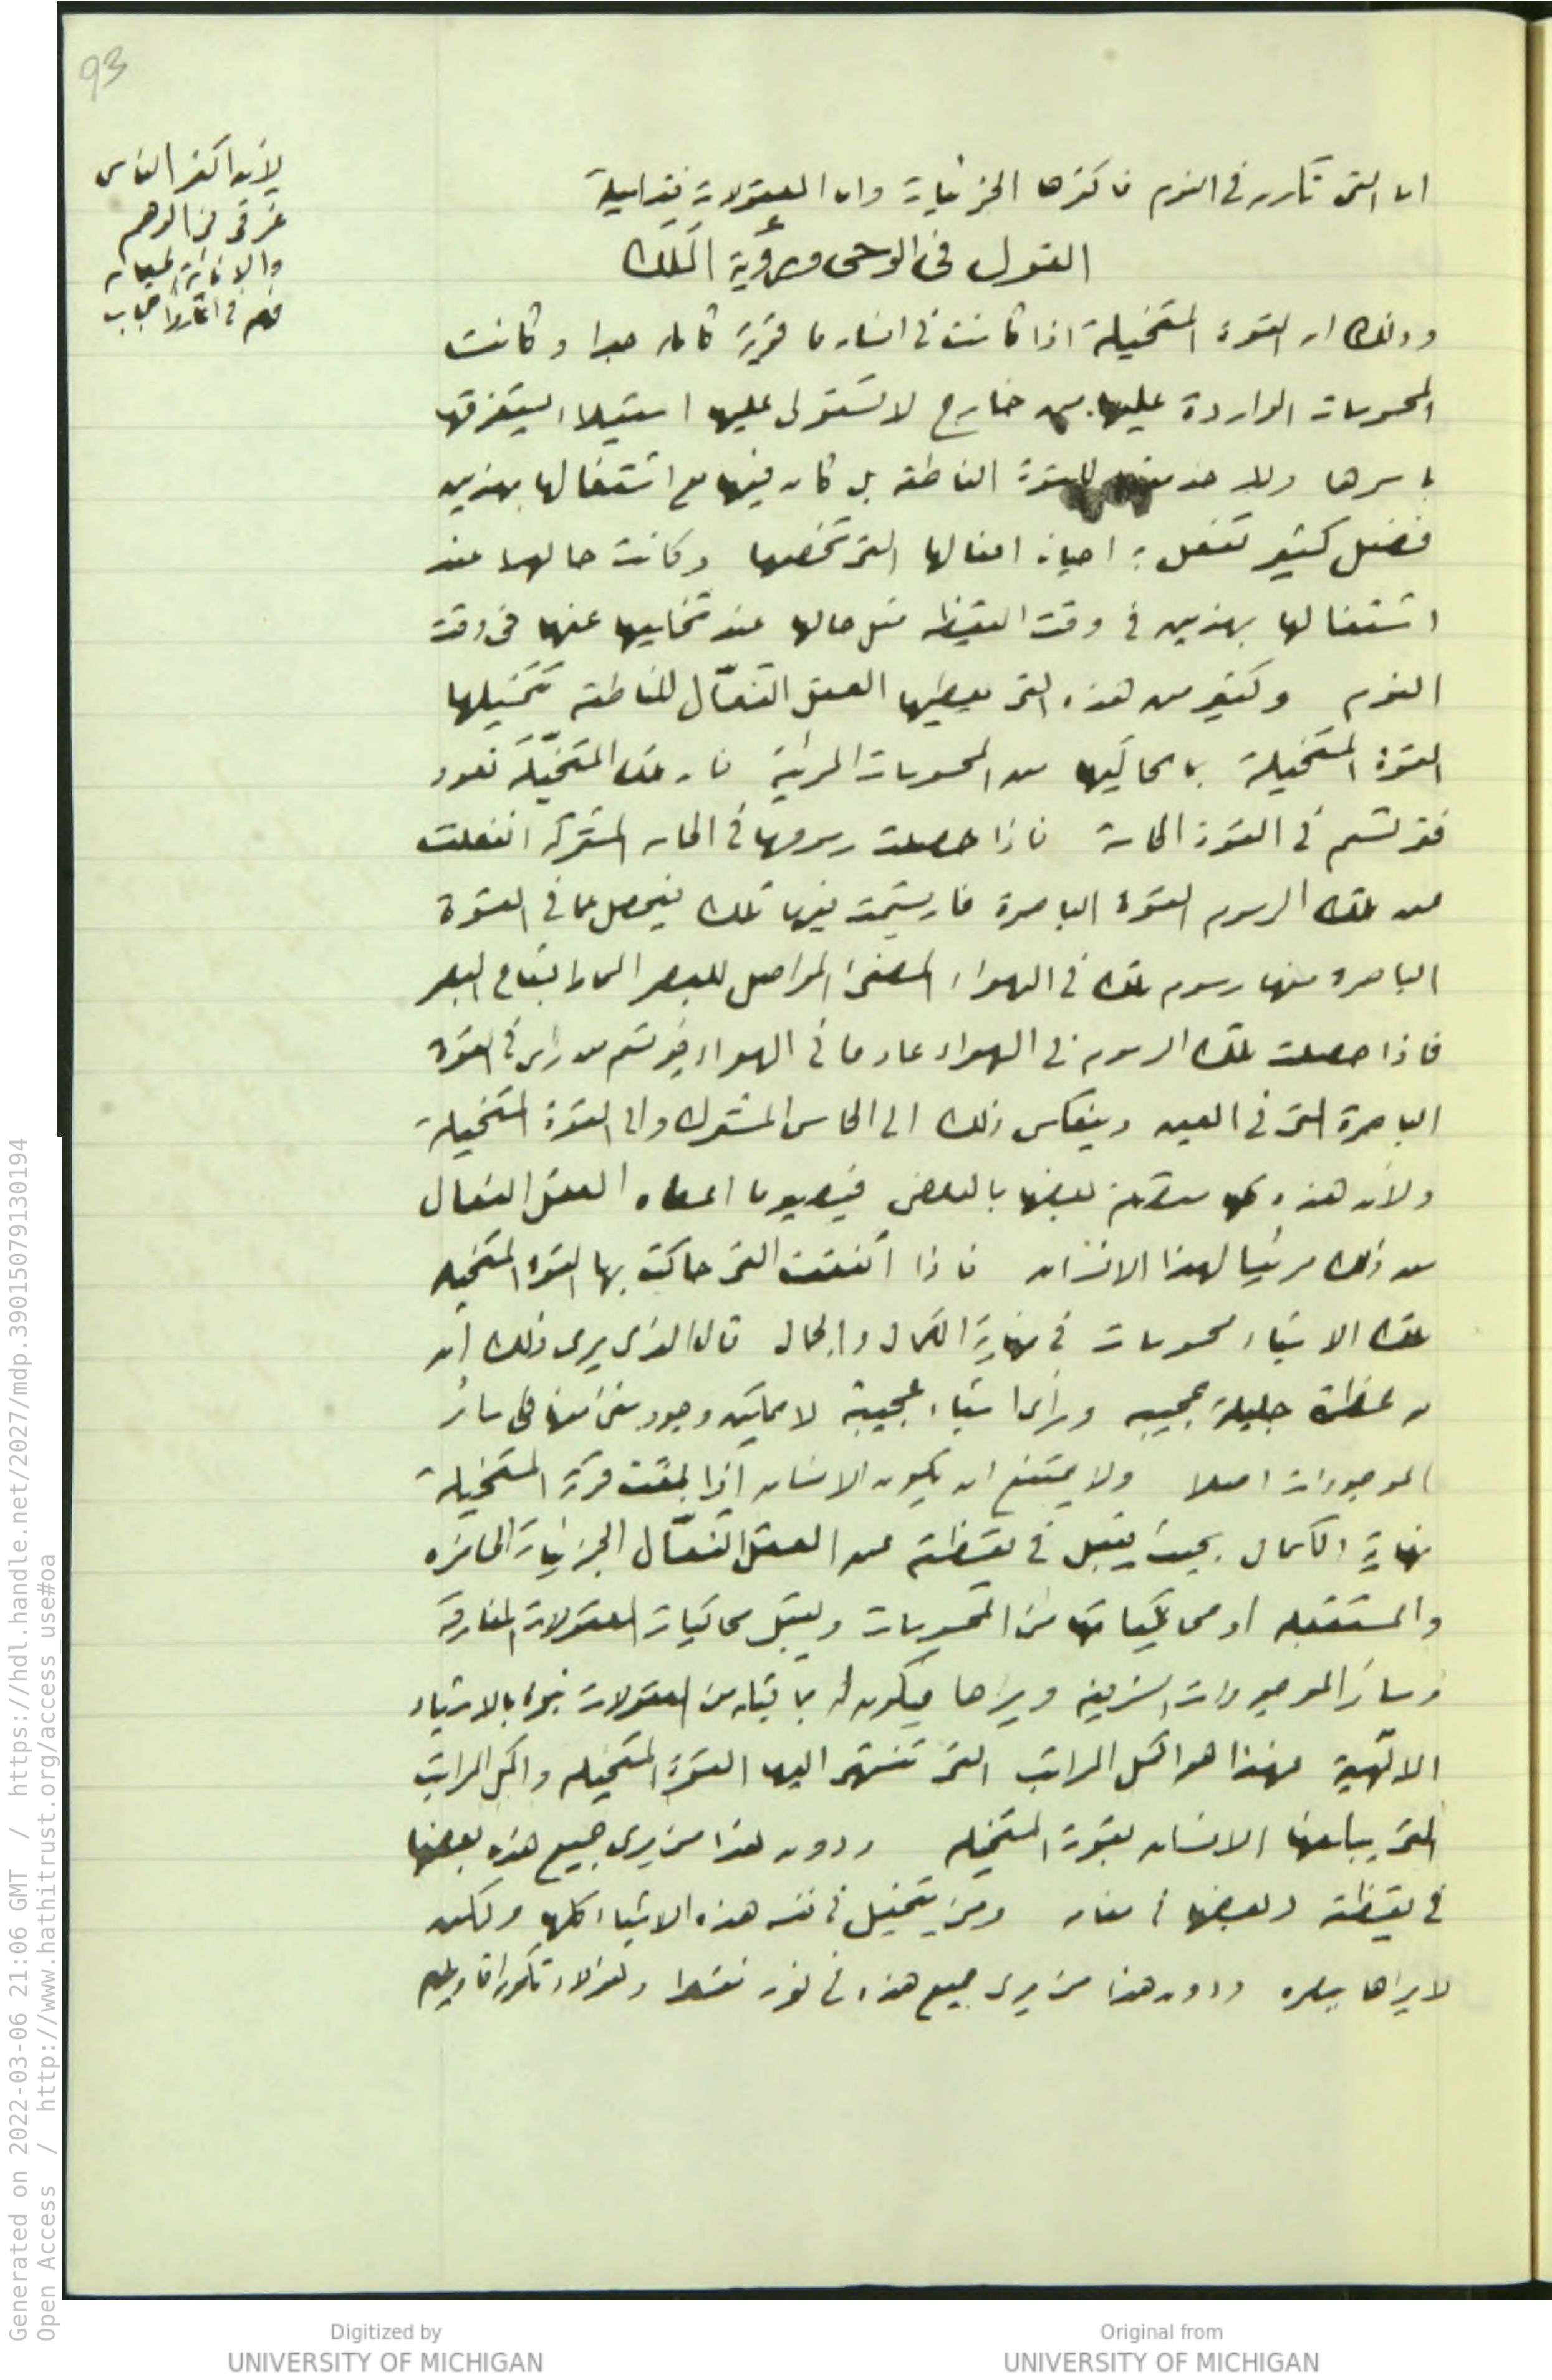 93
لأن اكثر الناس
غرقى في الوهم
اما التى تكون فى النوم فاكثرها الجزئيات واما المعقولات فقليلة
القول فى الوحى ورؤية الملك
وذلك ان القوة المتخيلة اذا كانت فى انسان ما قوية كاملة جدا وكانت
المحسوسات الواردة عليها من خارج لا تستولى عليها استيلاء يستغرقها
باسرها ولا خدمتها للقوة الناطقة بل كان فيها مع اشتغالها بهذين
فضل كثير تفعل به احيانا افعالها التى تخصها وكانت حالها عند
اشتغالها بهذين فى وقت اليقظة مثل حالها عند تحللها عنها فى وقت
النوم وكثير من هذه التى يعطيها العقل الفعّال للناطقة تتخيلها
القوة المتخيلة بما تحاكيها من المحسوسات المرئية فان تلك المتخيّلة تعود
فترتسم فى القوة الحاسة فاذا حصلت رسومها فى الحاسة المشتركة انفعلت
عن تلك الرسوم القوة الباصرة فارتسمت فيها تلك فيحصل عما فى القوة
الباصرة منها رسوم تلك فى الهواء المضئ المواصل للبصر المنحاز بشعاع البصر
فاذا حصلت تلك الرسوم فى الهواء عاد ما فى الهواء فيرتسم من رأس فى القوة
الباصرة التى فى العين وينعكس ذلك الى الحاس المشترك والى القوة المتخيلة
ولأن هذه كلها متصلة بعضها بالبعض فيصير ما اعطاه العقل الفعال
من ذلك مرئيا لهذا الانسان فاذا اتفقت التى حاكت بها القوة المتخيلة
تلك الاشياء محسوسات فى نهاية الكمال والجمال قال الذى يرى ذلك ان
له عظمة جليلة عجيبة ورأى اشياء عجيبة لا يمكن وجود شئ منها فى سائر
الموجودات اصلا ولا يمتنع ان يكون الانسان اذا بلغت قوته المتخيلة
نهاية الكمال بحيث يقبل فى يقظته عن العقل الفعّال الجزئيات الحاضرة
والمستقبلة او محاكياتها من المحسوسات ويقبل محاكيات المعقولات المفارقة
وسائر الموجودات الشريفة ويراها فيكون له بما قبله من المعقولات نبوة بالاشياء
الالٰهية فهذا هو اكمل المراتب التى تنتهى اليها القوة المتخيلة واكمل المراتب
التى يبلغها الانسان بقوته المتخيلة ودون هذا من يرى جميع هذه بعضها
فى يقظته وبعضها فى منامه ومن يتخيل فى نفسه هذه الاشياء كلها ولكن
لا يراها ببصره ودون هذا من يرى جميع هذه فى نومه فقط وهؤلاء تكون اقاويلهم
Generated on 2022-03-06 21:06 GMT / https://hdl.handle.net/2027/mdp.39015079130194
Open Access / http://www.hathitrust.org/access_use#oa
Digitized by
UNIVERSITY OF MICHIGAN
Original from
UNIVERSITY OF MICHIGAN